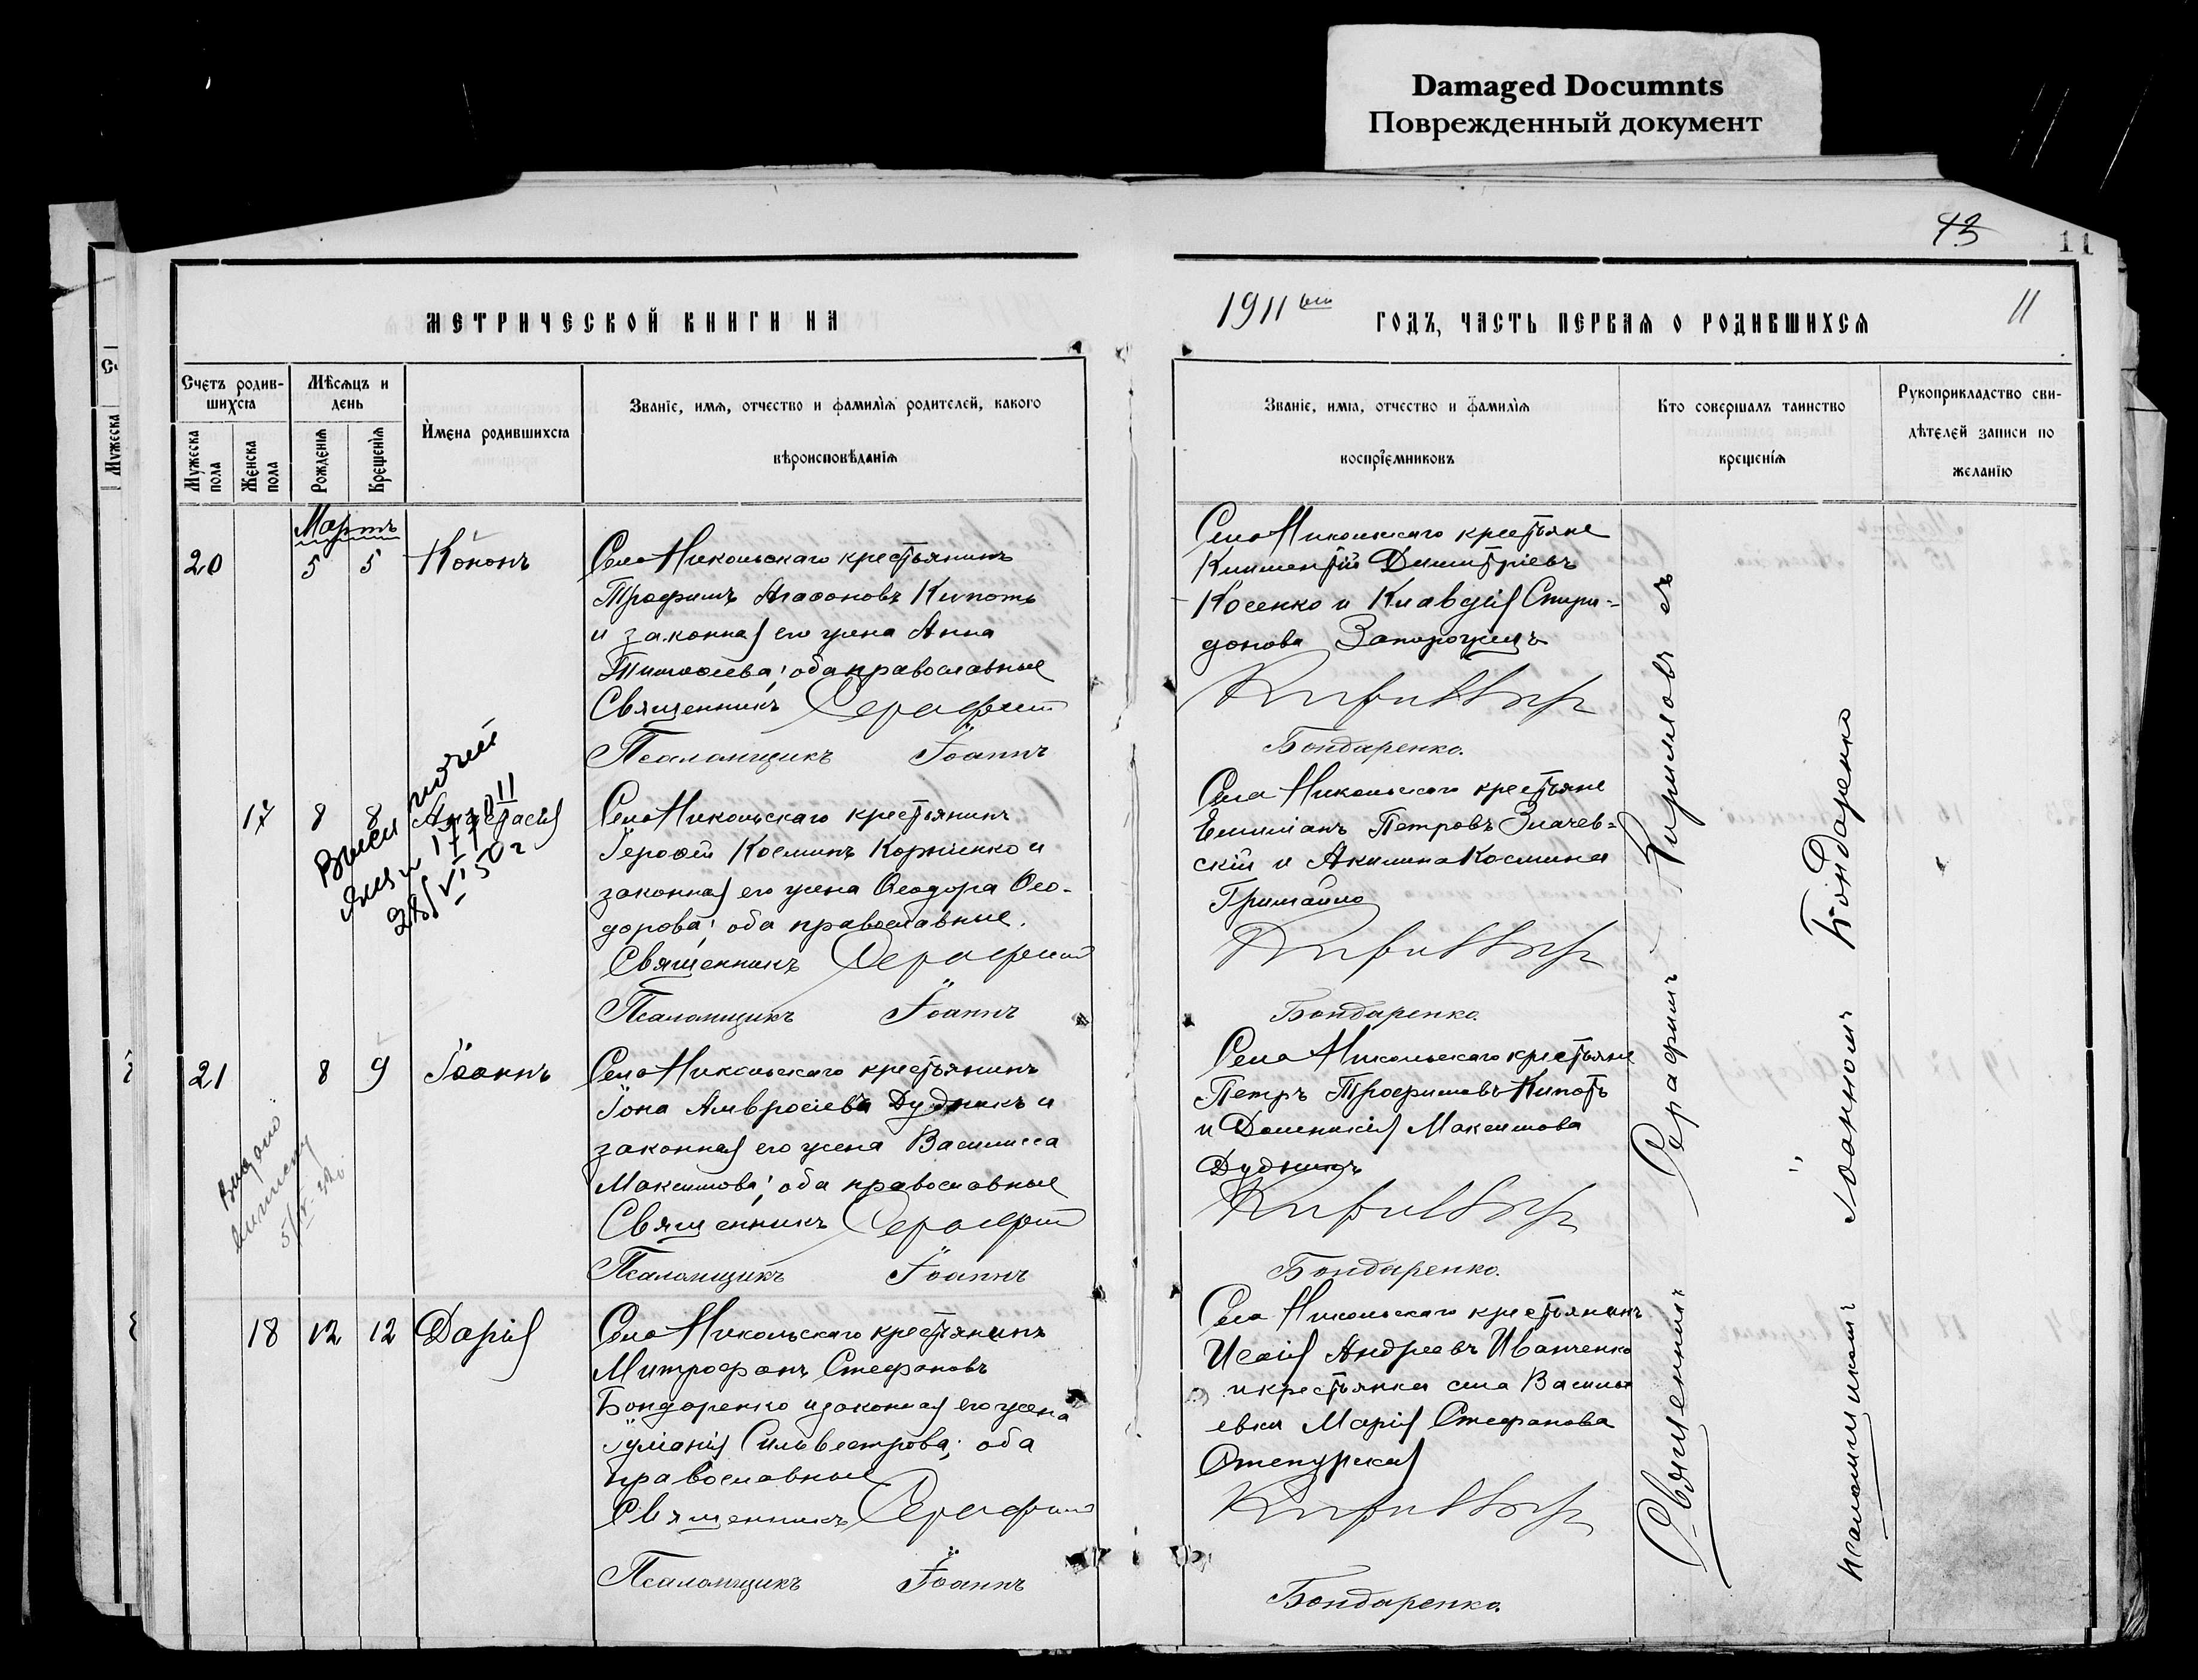 Damaged Documnts
Поврежденный документ
43
11
МЕТРИЧЕСКОЙ КНИГИ НА
1911
ГОДЪ, ЧАСТЬ ПЕРВАЯ О РОДИВШИХСЯ
11
Счетъ родив-
шихся
Мужеска пола
Женска пола
Мѣсяцъ и
день
Рожденія
Крещенія
Имена родившихся
Званіе, имя, отчество и фамилія родителей, какого
вѣроисповѣданія
Званіе, имя, отчество и фамилія
воспріемниковъ
Кто совершалъ таинство
крещенія
Рукоприкладство сви-
дѣтелей записи по
желанію
Мартъ
20 5 5 Кононъ
Села Никольскаго крестьянинъ
Трофимъ Агафоновъ Кипоть
и законная его жена Анна
Тимофеева; оба православные
Священникъ Серафим
Псаломщикъ Іоаннъ
Села Никольскаго крестьяне
Климентій Димитріевъ
Косенко и Клавдія Спири-
донова Запорожецъ
Кирилловъ
Бондаренко.
17 8 8 Анастасія
28/VI 50 г
Села Никольскаго крестьянинъ
Іерофей Косминъ Корніенко и
законная его жена Ѳеодора Ѳео-
дорова; оба православные.
Священникъ Серафим
Псаломщикъ Іоаннъ
Села Никольскаго крестьяне
Емиліанъ Петровъ Значев-
скій и Акилина Космина
Гримайло
Кирилловъ
Бондаренко.
21 8 9 Іоаннъ
Выдано
Села Никольскаго крестьянинъ
Іона Амвросіевъ Дудникъ и
законная его жена Василисса
Максимова; оба православные
Священникъ Серафим
Псаломщикъ Іоаннъ
Села Никольскаго крестьяне
Петръ Трофимовъ Кипоть
и Домникія Максимова
Дудникъ
Кирилловъ
Бондаренко.
18 12 12 Дарія
Села Никольскаго крестьянинъ
Митрофанъ Стефановъ
Бондаренко и законная его жена
Іуліанія Сильвестрова; оба
православные
Священникъ Серафим
Псаломщикъ Іоаннъ
Села Никольскаго крестьянинъ
Исаія Андреевъ Иванченко
и крестьянка села Василь
евки Марія Стефанова
Кирилловъ
Бондаренко.
Священникъ Серафимъ Кирилловъ съ
псаломщикомъ Іоанномъ Бондаренко